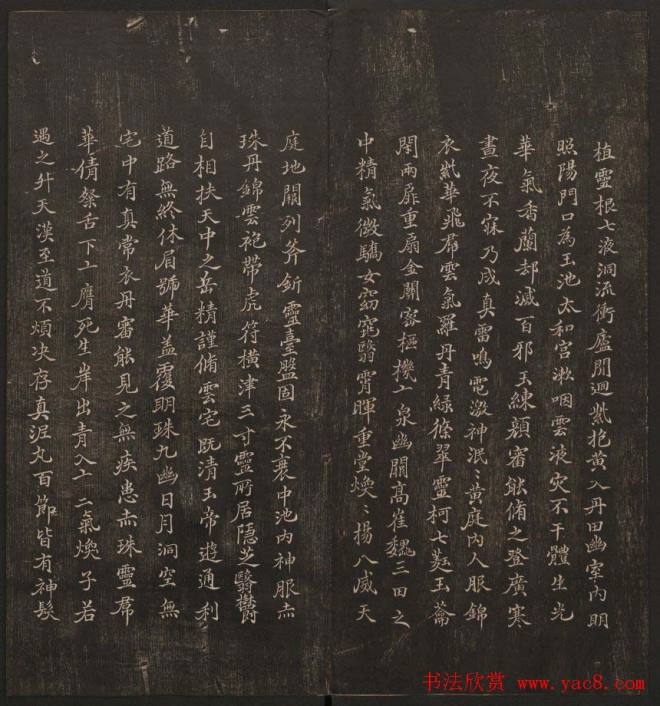 植靈根七液洞流衝廬間迴紫抱黃入丹田幽室內明
照陽門口為玉池太和宮漱咽靈液灾不干體生光
華氣香蘭却滅百邪玉練顏審能脩之登廣寒
晝夜不寐乃成真雷鳴電激神泯〻黃庭內人服錦
衣紫華飛裙雲氣羅丹青綠條翠靈柯七蕤玉蘥
閉兩扉重扇金關密樞機玄泉幽關高崔巍三田之
中精氣微驕女窈窕翳霄暉重堂煥〻揚八威天
庭地關列斧斨靈臺盤固永不衰中池內神服赤
珠丹錦雲袍帶虎符橫津三寸靈所居隱芝翳鬱
自相扶天中之岳精謹脩雲宅既清玉帝遊通利
道路無終休眉號華盖覆明珠九幽日月洞空無
宅中有真常衣丹審能見之無疾患赤珠靈裙
華倩粲舌下玄膺死生岸出青入玄二氣煥子若
遇之升天漢至道不煩決存真泥丸百節皆有神髮
书法欣赏 www.yac8.com